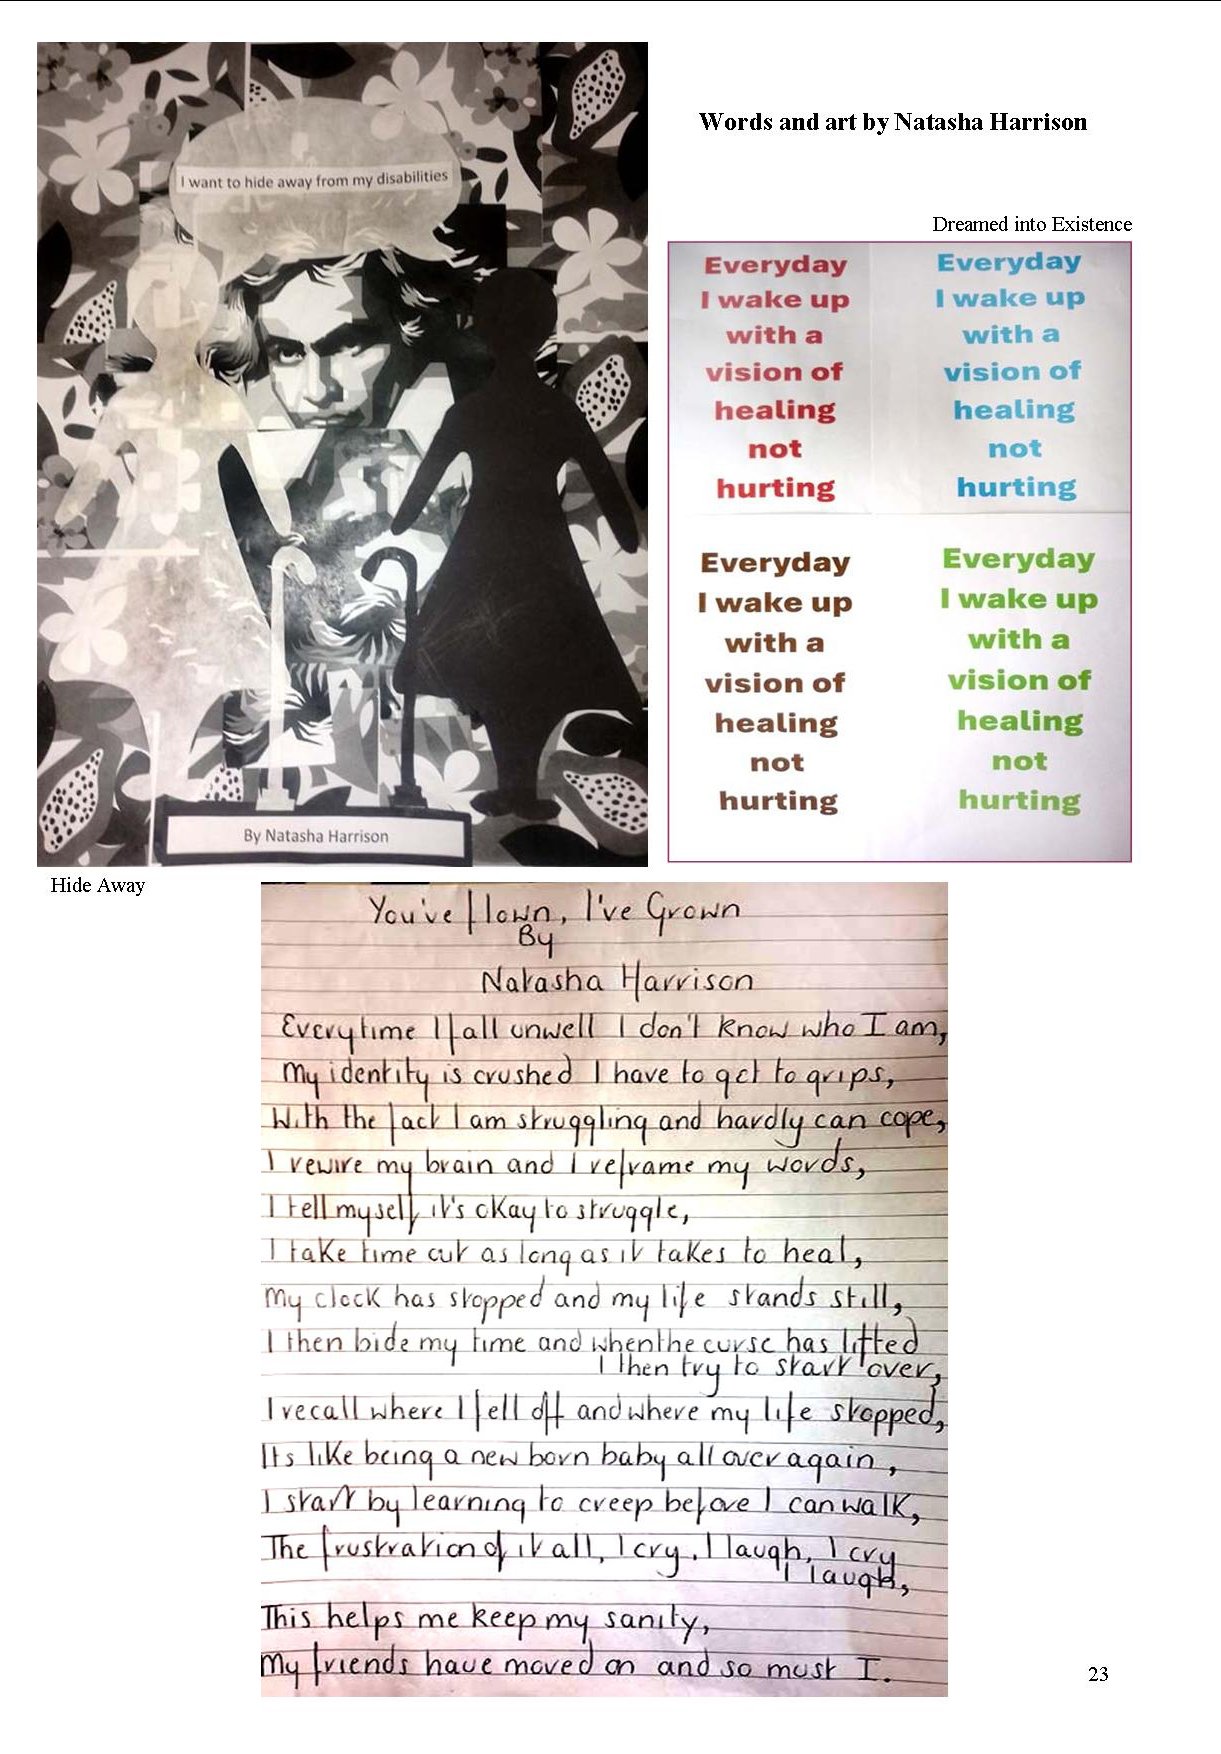 Words and art by Natasha Harrison
I want to hide away from my disabilities
By Natasha Harrison
Hide Away
Dreamed into Existence
Everyday
I wake up
with a
vision of
healing
not
hurting
Everyday
I wake up
with a
vision of
healing
not
hurting
Everyday
I wake up
with a
vision of
healing
not
hurting
Everyday
I wake up
with a
vision of
healing
not
hurting
You've flown, I've Grown
By
Natasha Harrison
Everytime I fall unwell I don't know who I am,
My identity is crushed I have to get to grips,
With the fact I am struggling and hardly can cope,
I rewire my brain and I reframe my words,
I tell myself it's okay to struggle,
I take time out as long as it takes to heal,
My clock has stopped and my life stands still,
I then bide my time and when the curse has lifted
I then try to start over,
I recall where I fell off and where my life stopped,
Its like being a new born baby all over again,
I start by learning to creep before I can walk,
The frustration of it all, I cry, I laugh, I cry
I laugh,
This helps me keep my sanity,
My friends have moved on and so must I.
23